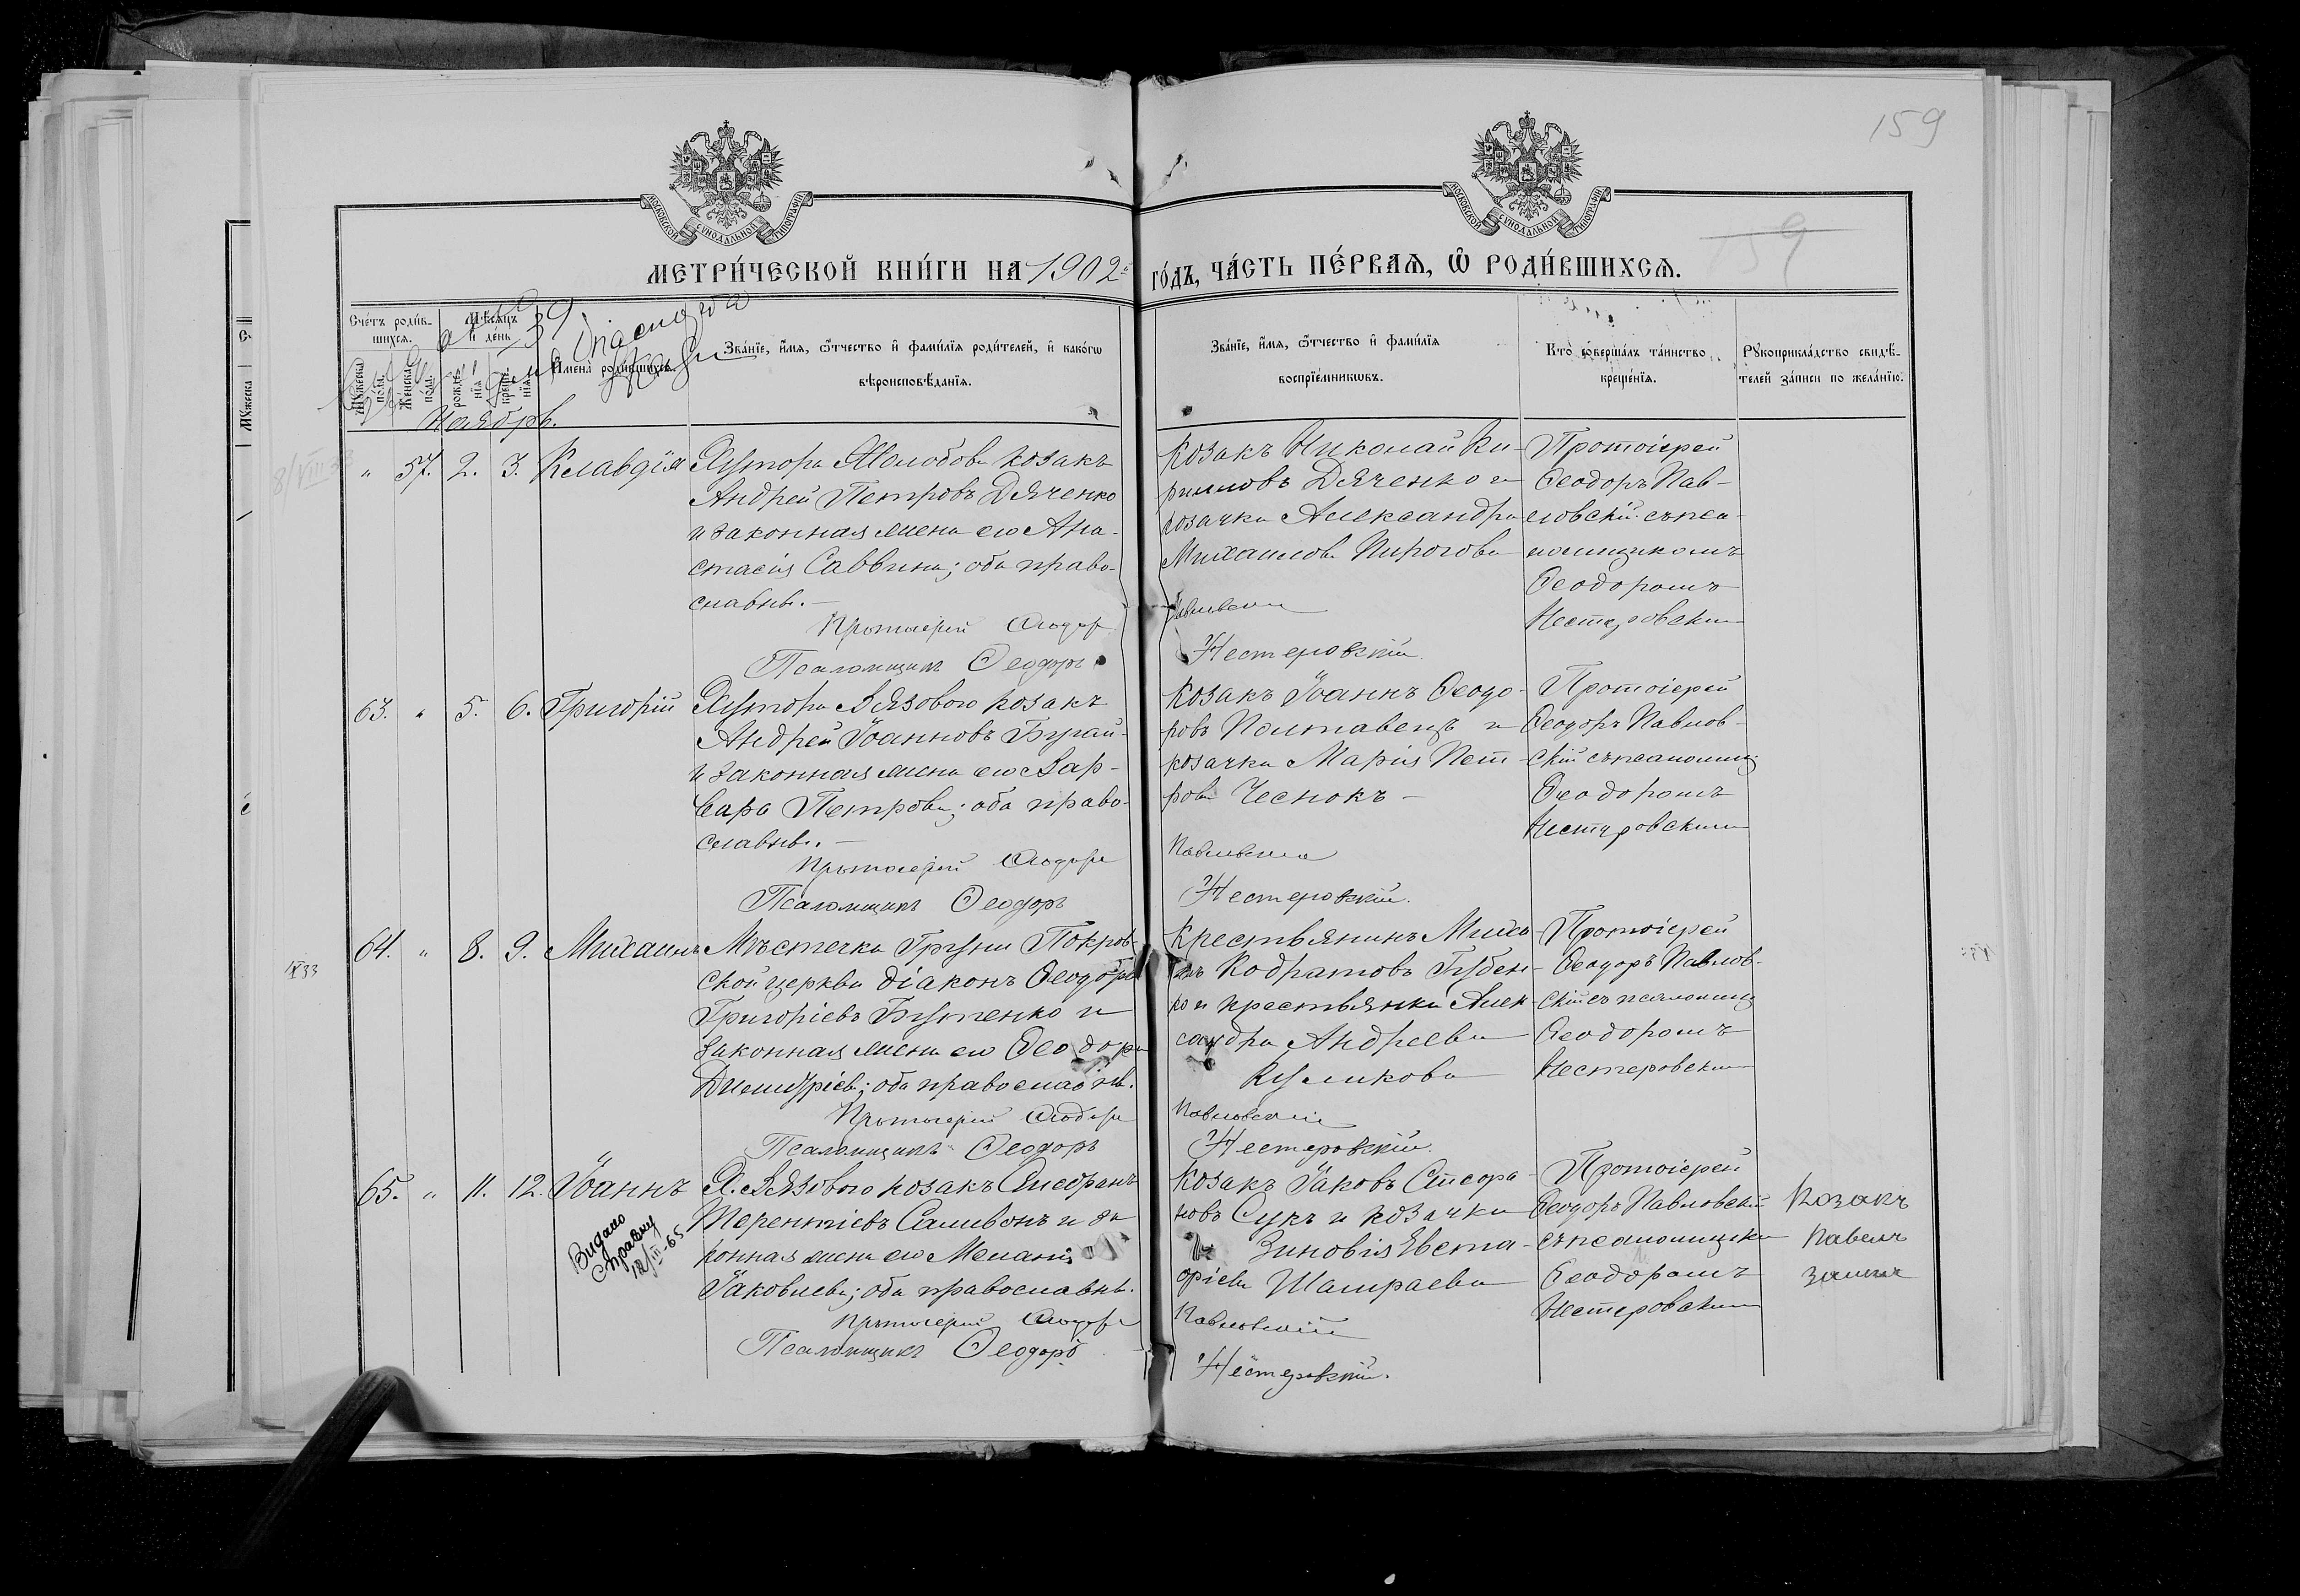 159
МОСКОВСКОЙ СѴНОДАЛЬНОЙ ТИПОГРАФІИ
МОСКОВСКОЙ СѴНОДАЛЬНОЙ ТИПОГРАФІИ
159
МЕТРИ́ЧЕСКОЙ КНИ́ГИ НА 1902 го́дъ, ЧА́СТЬ ПЕ́РВАѦ, Ѡ҆ РОДИ́ВШИХСѦ.
Сче́тъ роди́в-
шихсѧ.
Мꙋ́жеска по́ла.
Же́нска по́ла.
Мѣ́сѧцъ
и҆ де́нь
рожде́-
нїѧ
креще́-
нїѧ
И҆мена̀ роди́вшихсѧ.
Зва́нїе, и҆́мѧ, ѻ҆́тчество и҆ фами́лїѧ роди́телей, и҆ како́гѡ
вѣроисповѣ́данїѧ.
Зва́нїе, и҆́мѧ, ѻ҆́тчество и҆ фами́лїѧ
воспрїе́мникѡвъ.
Кто̀ соверша́лъ та́инство
креще́нїѧ.
Рꙋкоприкла́дство свидѣ́-
телей за́писи по жела́нїю.
Ноябрь.
" 57. 2. 3. Клавдія
Хутора Молодова козакъ
Андрей Петровъ Дяченко
и законная жена его Ана-
стасія Саввина; оба право-
славны.
Протоіерей Феодоръ
Псаломщикъ Феодоръ
Козакъ Николай Ки-
рилловъ Дяченко и
козачка Александра
Михаилова Пирогова
Павловскій
Нестеровскій.
Протоіерей
Феодоръ Пав-
ловскій съ пса-
ломщикомъ
Феодоромъ
Нестеровскимъ
63. " 5. 6. Григорій
Хутора Вязового козакъ
Андрей Іоанновъ Бугай
и законная жена его Вар-
вара Петрова; оба право-
славны.
Протоіерей Феодоръ
Псаломщикъ Феодоръ
Козакъ Іоаннъ Феодо-
ровъ Полтавецъ и
козачка Марія Пет-
рова Чеснокъ
Павловскій
Нестеровскій.
Протоіерей
Феодоръ Павлов-
скій съ псаломщ
Феодоромъ
Нестеровскимъ
IX 33
64. " 8. 9. Михаилъ
Мѣстечка Груни Покров-
ской церкви діаконъ Феодоръ
Григоріевъ Бутенко и
законная жена его Феодора
Димитріева; оба православны.
Протоіерей Феодоръ
Псаломщикъ Феодоръ
Крестьянинъ Миха-
илъ Кодратовъ Губен-
ко и крестьянка Алек-
сандра Андреева
Куликова
Павловскій
Нестеровскій.
Протоіерей
Феодоръ Павлов-
скій съ псаломщ
Феодоромъ
Нестеровскимъ
65. " 11. 12. Іоаннъ
Видано
справку
12/III-65
Х. Вязового козакъ
Терентіевъ и за
конная жена его Меланія
Іаковлева; оба православны.
Протоіерей Феодоръ
Псаломщикъ Феодоръ
Козакъ Іаковъ
новъ Сукъ и козачка
Зиновія Евста-
фіева Шамраева
Павловскій
Нестеровскій.
Протоіерей
Феодоръ Павловскій
съ псаломщикомъ
Феодоромъ
Нестеровскимъ
Козакъ
Павелъ